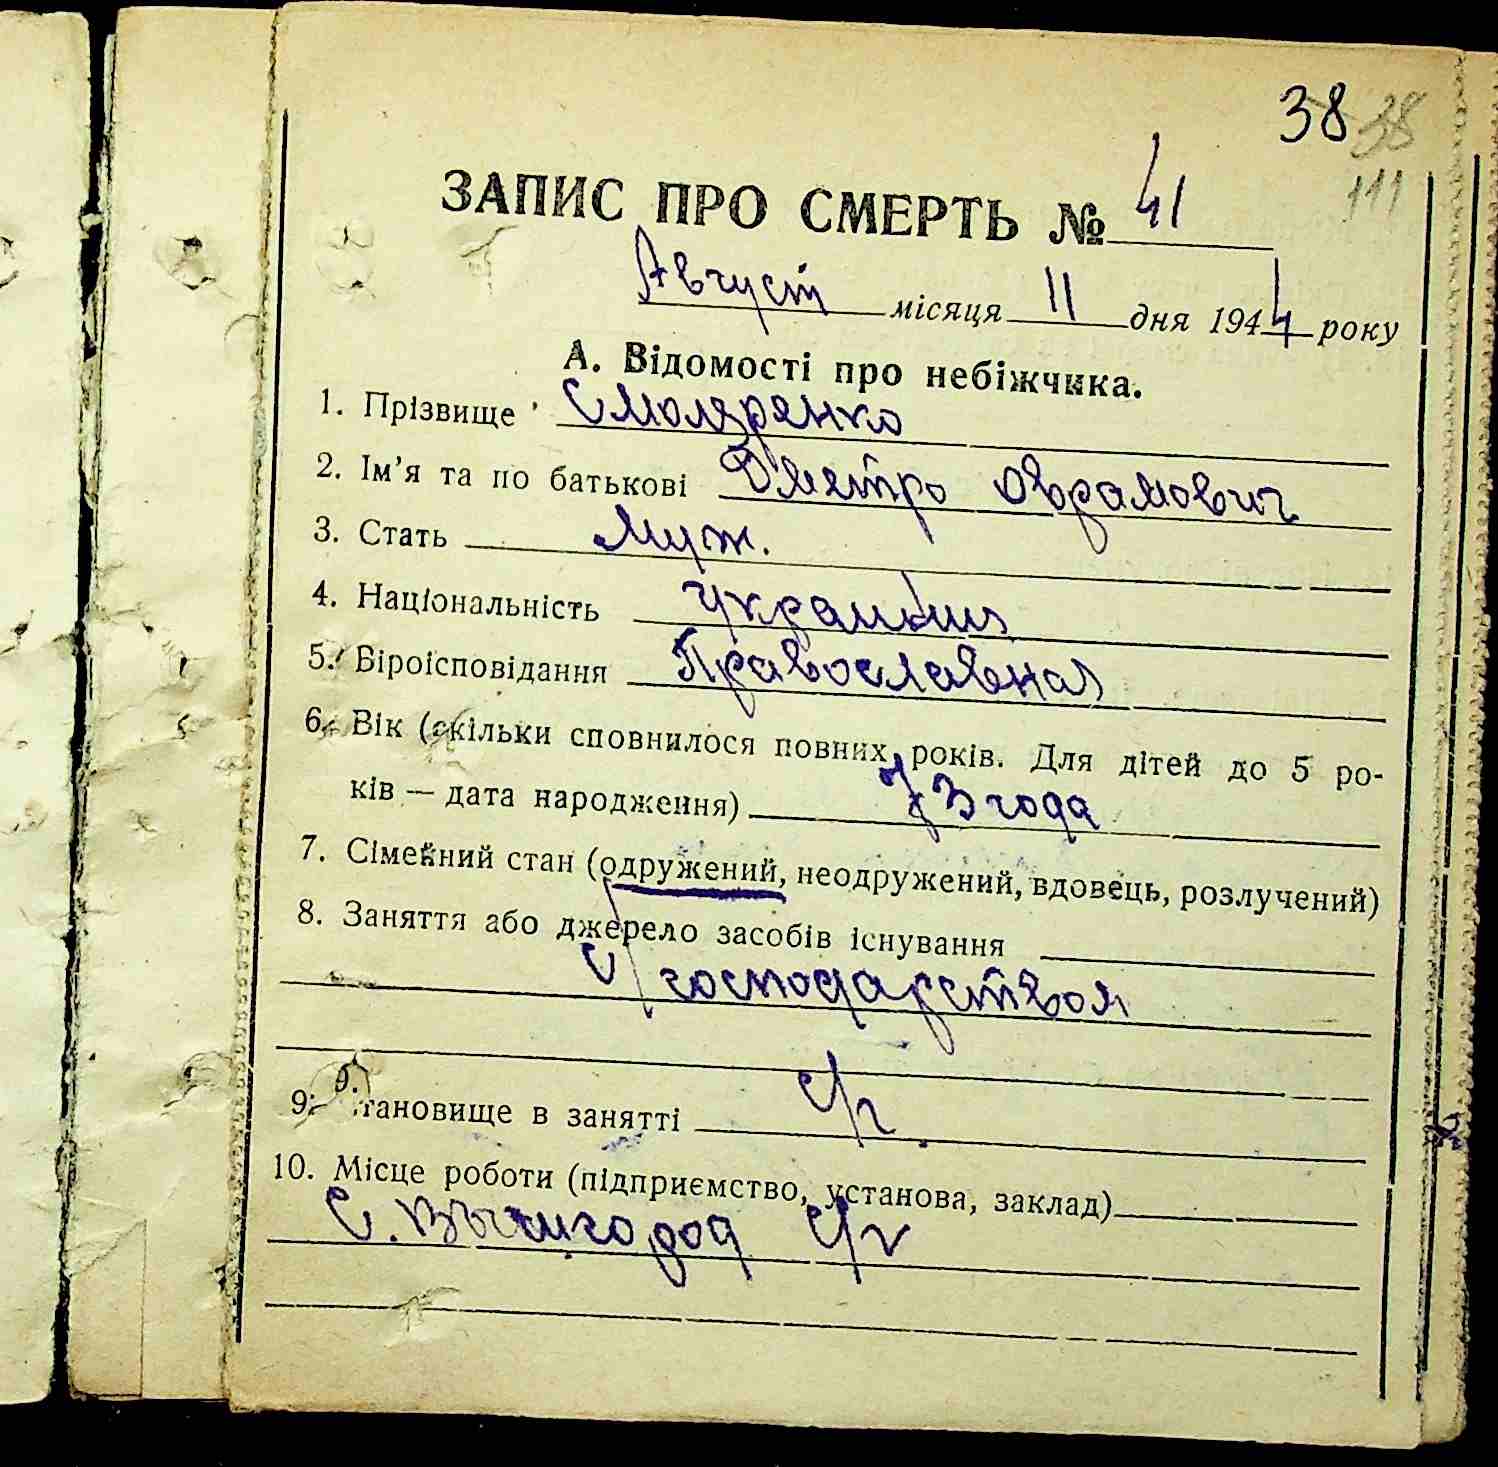 38 38
111
ЗАПИС ПРО СМЕРТЬ № 41
Август місяця 11 дня 1944 року
А. Відомості про небіжчика.
1. Прізвище Смоляренко
2. Ім'я та по батькові Дмитро Аврамович
3. Стать муж.
4. Національність
5. Віроісповідання Православная
6. Вік (скільки сповнилося повних років. Для дітей до 5 ро-
ків — дата народження) 73 года
7. Сімейний стан (одружений, неодружений, вдовець, розлучений)
8. Заняття або джерело засобів існування
С/господарством
9. Становище в занятті с/г
10. Місце роботи (підприємство, установа, заклад)
С. Вышгород с/г